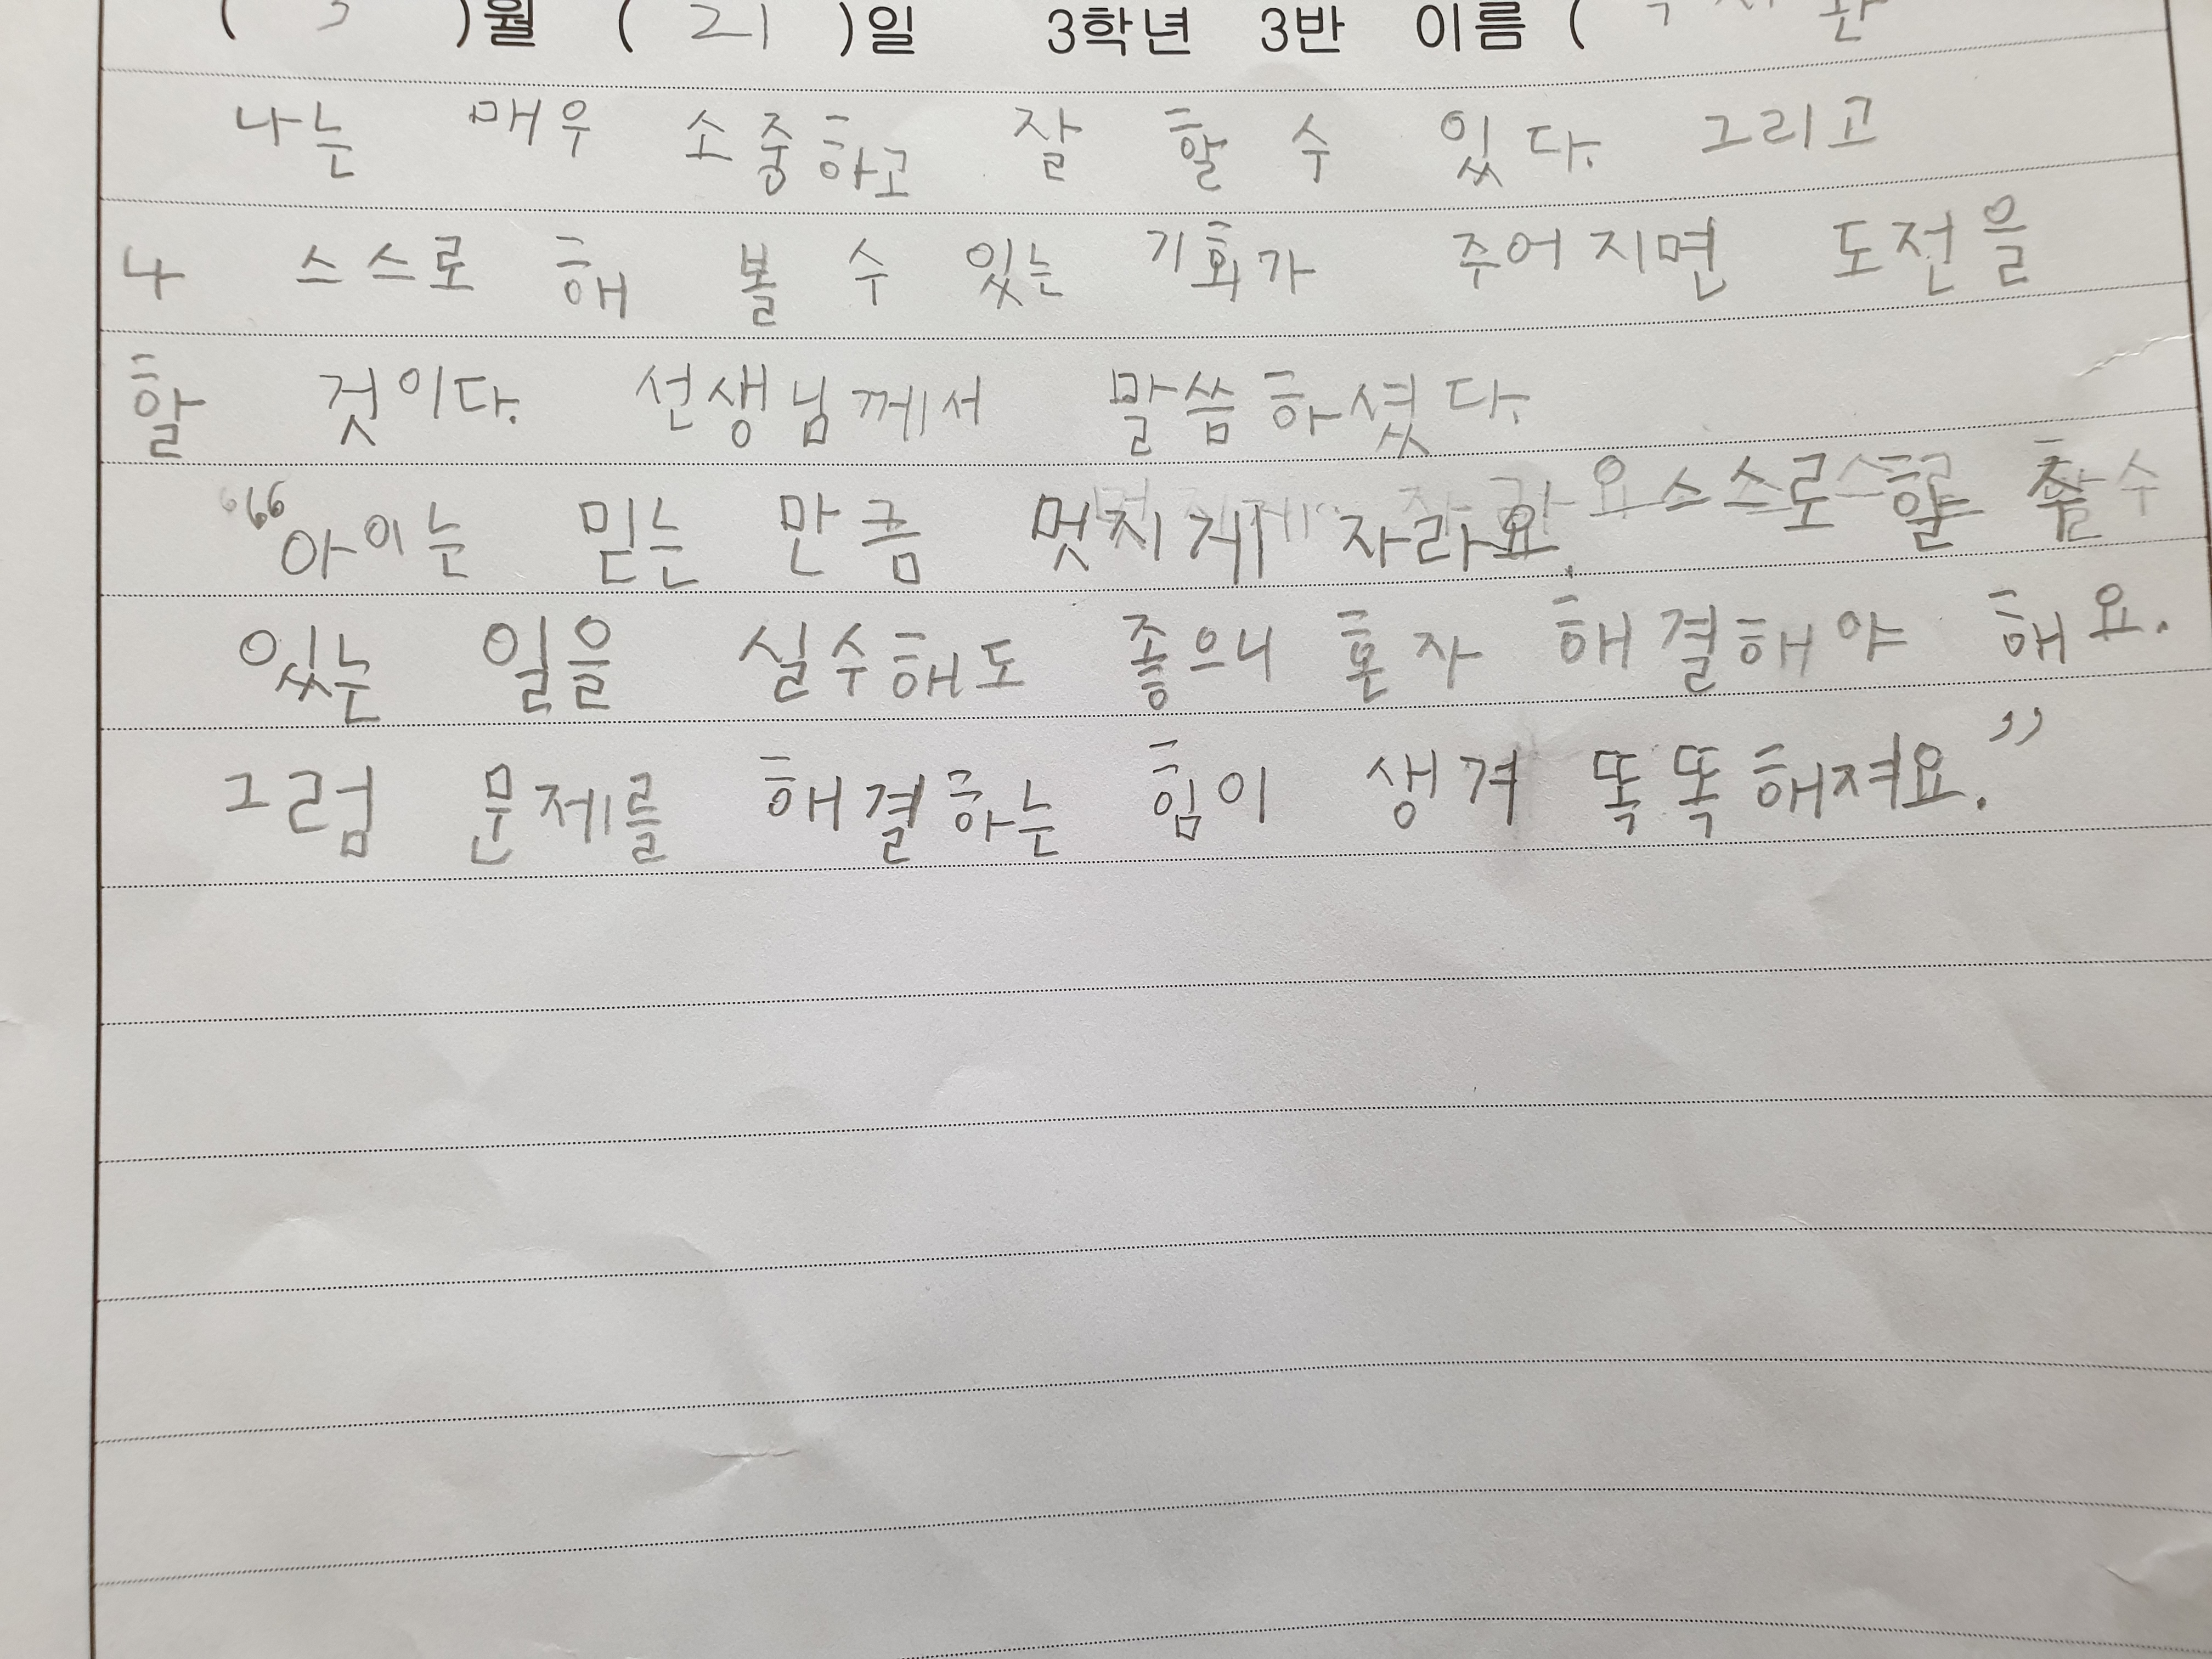 ( 3 )월 ( 21 )일 3학년 3반 이름 (
나는 매우 소중하고 잘 할 수 있다. 그리고
나 스스로 해 볼 수 있는 기회가 주어지면 도전을
할 것이다. 선생님께서 말씀하셨다.
“아이는 믿는 만큼 멋지게 자라요. 스스로 할 수
있는 일을 실수해도 좋으니 혼자 해결해야 해요.
그럼 문제를 해결하는 힘이 생겨 똑똑해져요.”